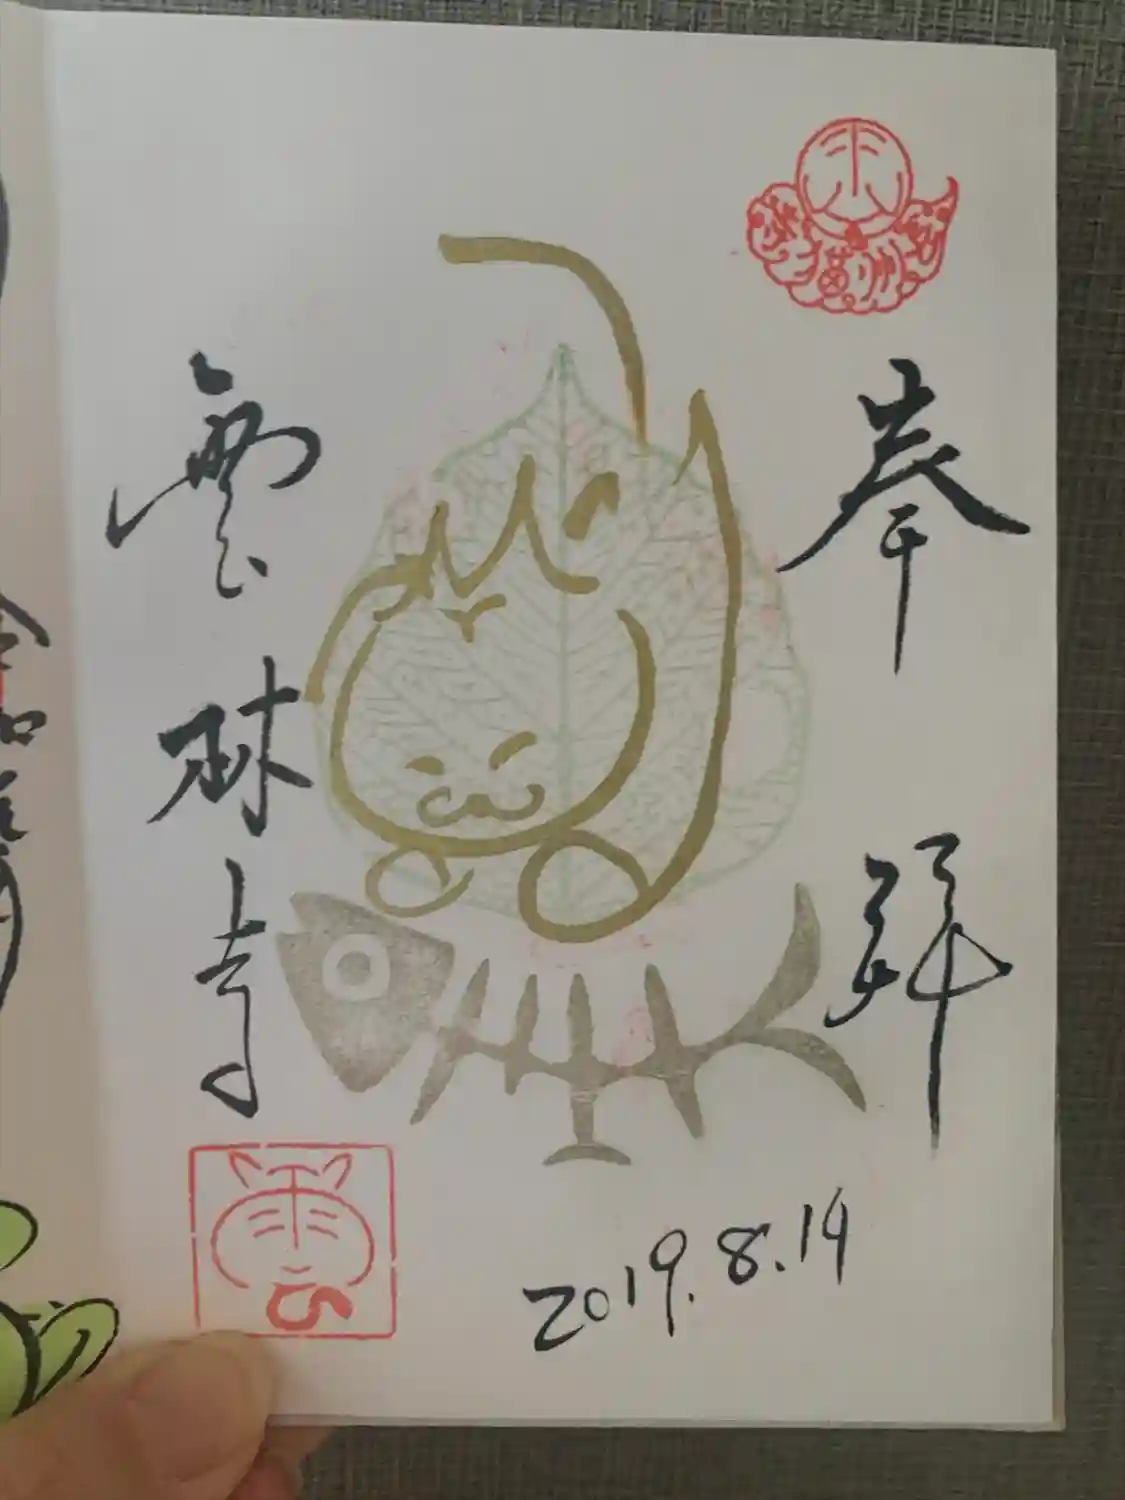 奉拝
雲球寺
2019.8.14